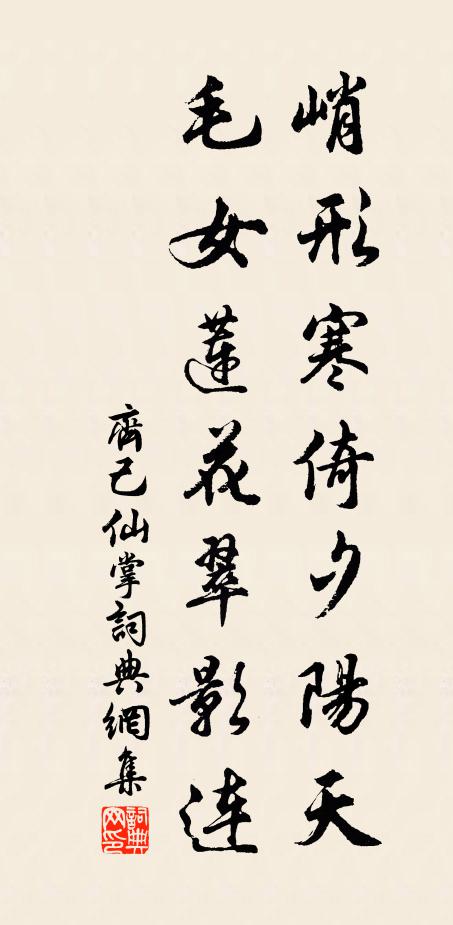 峭形寒倚夕陽天
毛女蓮花翠影連
齊己仙掌詞典網集
詞典網印